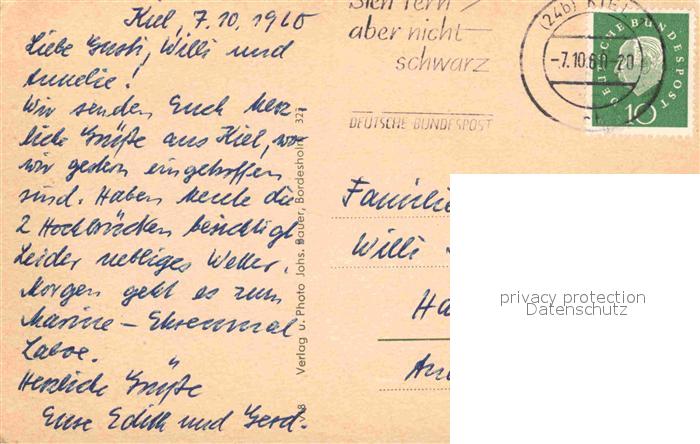 Kiel, 7.10.1960
Liebe Gusti, Willi und
Annelie!
Wir senden Euch herz-
liche Grüße aus Kiel, wo
wir gestern eingetroffen
sind. Haben heute die
2 Hochbrücken besichtigt
Leider nebliges Wetter.
Morgen geht es zum
Marine - Ehrenmal
Laboe.
Herzliche Grüße
Eure Edith und Gerd.
Verlag u. Photo Johs. Bauer, Bordesholm
323
aber nicht
schwarz
DEUTSCHE BUNDESPOST
(24b) KIEL
-7.10.60-20
DEUTSCHE BUNDESPOST
10
Familie
Willi
privacy protection
Datenschutz